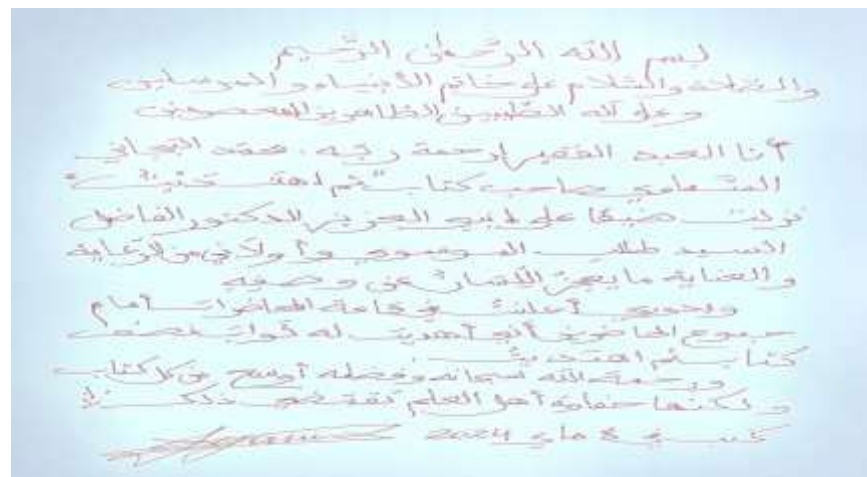 بسم الله الرحمن الرحيم
والصلاة والسلام على خاتم الأنبياء و المرسلين
وعلى آله الطيبين الطاهرين المعصومين
أنا العبد الفقير لرحمة ربه . محمد التيجاني
السماوي صاحب كتاب "ثم اهتديت"
نزلت ضيفا على العزيز الدكتور الفاضل
السيد طالب الموسوي وأولاني من الرعاية
و العناية ما يعجز اللسان عن وصفه
أعلنت في المحاضرات أمام
جموع الحاضرين أني أهديت له ثواب
كتاب ثم اهتديت
ورحمة الله سبحانه وفضله أوسع من كل
و لكنها أهل العلم تقتضي ذلك
كتب في 8 ماي 2024